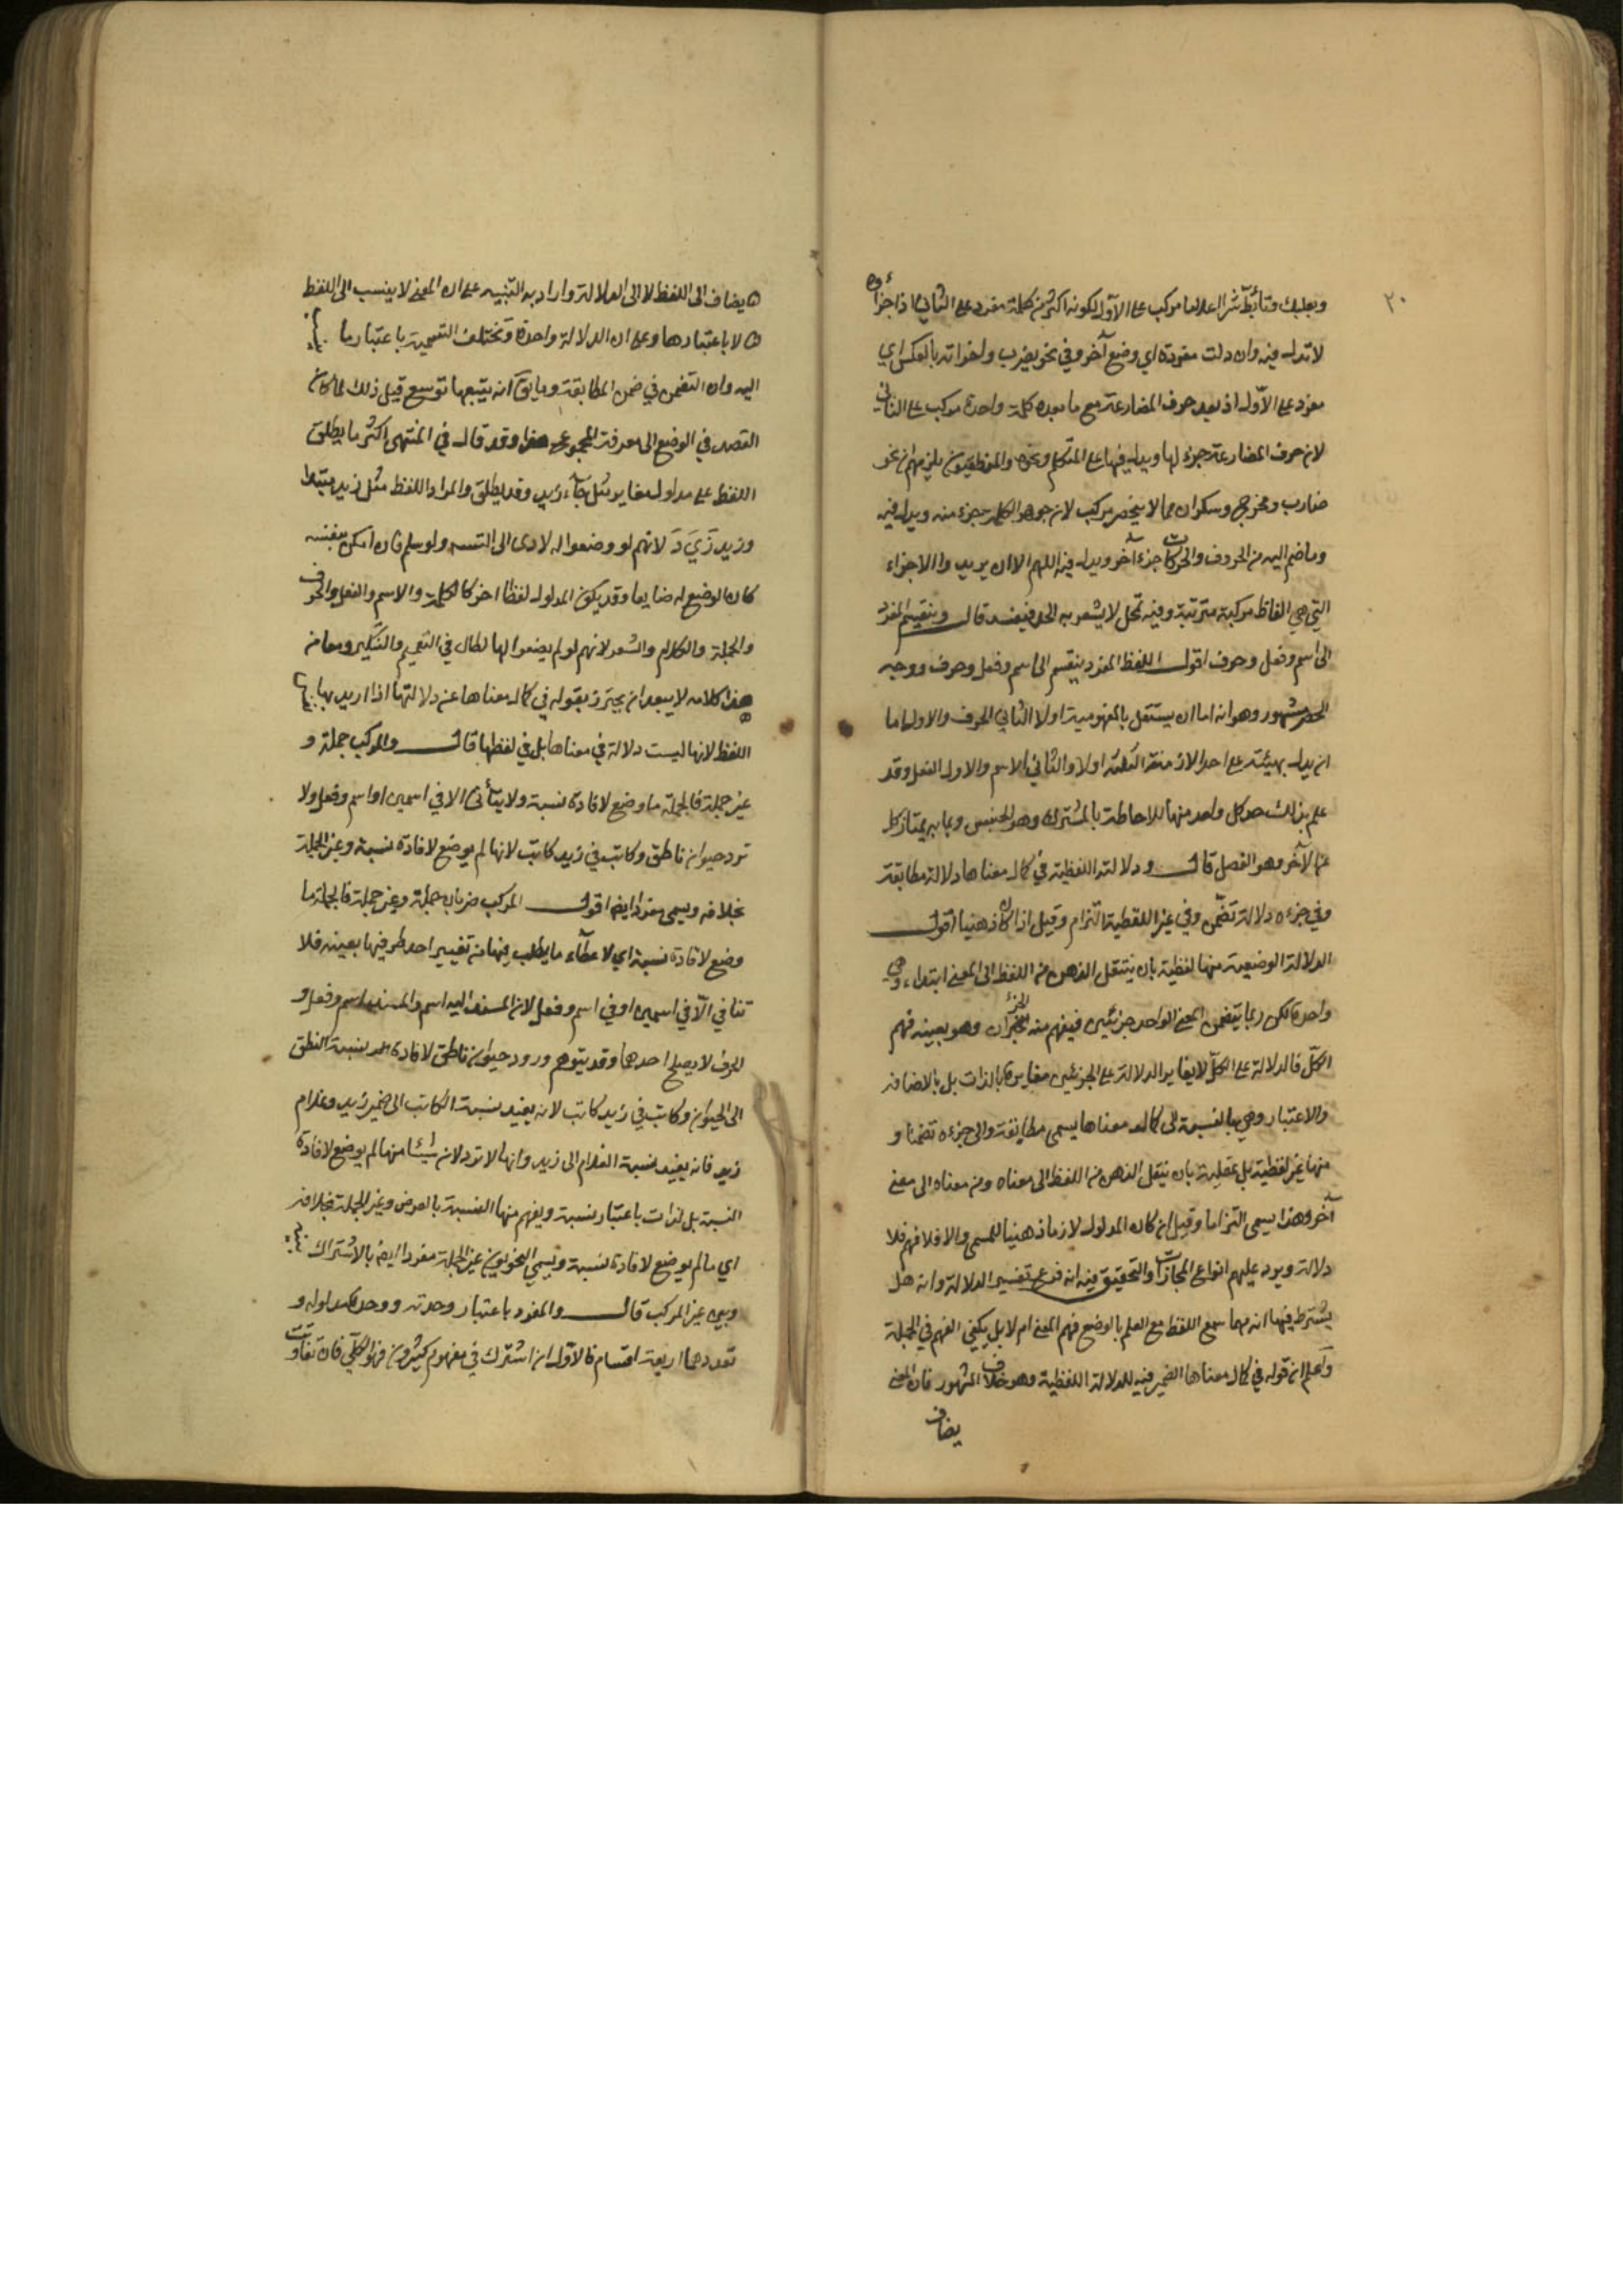 ٢٠
وبعلبك وتأبط شرا علاما مركب على الأول لكونه اكثر من كلمة مفرد على الثاني اذ اجزاؤه
لا تدل فيه وان دلت مفردة اي وضع آخر وفي نحو يضرب واخواته بالعكس اي
مفرد على الاول اذ يعد حرف المضارعة مع ما بعده كلمة واحدة مركب على الثاني
لان حرف المضارعة جزء لها ويدل فيها على المتكلم ونحوه والمنطقيون يلزمهم ان نحو
ضارب ومخرج وسكران مما لا ينحصر مركب لان جوهر الكلمة جزء منه ويدل فيه
وما ضم اليه من الحروف والحركات جزء آخر ويدل فيه اللهم الا ان يريدوا الاجزاء
التي هي الفاظ مركبة مترتبة وفيه تمحل لا يشعر به الحد فيفسد قال وينقسم المفرد
الى اسم وفعل وحرف اقول اللفظ المفرد ينقسم الى اسم وفعل وحرف ووجه
الحصر مشهور وهو انه اما ان يستقل بالمفهومية اولا الثاني الحرف والاول اما
ان يدل بهيئته على احد الازمنة الثلثة اولا والثاني الاسم والاول الفعل وقد
علم بذلك حد كل واحد منها للاحاطة بالمشترك وهو الجنس وبما به يمتاز كل
عن الآخر وهو الفصل قال ودلالته اللفظية في كمال معناها دلالة مطابقة
وفي جزءه دلالة تضمن وفي غير اللفظية التزام وقيل اذا كان ذهنيا اقول
الدلالة الوضعية منها لفظية بان ينتقل الذهن من اللفظ الى المعنى ابتداء وهي
واحدة لكن ربما يتضمن المعنى الواحد جزئين فيفهم منه الجزآن وهو بعينه فهم
الكل فالدلالة على الكل لا يغاير الدلالة على الجزئين مغايرة بالذات بل بالاضافة
والاعتبار وهي بالنسبة الى كمال معناها يسمى مطابقة والى جزءه تضمنا و
منها غير لفظية بل عقلية بان ينتقل الذهن من اللفظ الى معناه ومن معناه الى معنى
آخر وهذا يسمى التزاما وقيل ان كان المدلول لازما ذهنيا للمسمى والا فلا فهم فلا
دلالة ويرد عليهم انواع المجازات والتحقيق فيه انه فرع تفسير الدلالة وانه هل
يشترط فيها انه مهما سمع اللفظ مع العلم بالوضع فهم المعنى ام لا بل يكفي الفهم في الجملة
واعلم ان قوله في كمال معناها الضمير فيه للدلالة اللفظية وهو خلاف المشهور فان المعنى
يضاف
يضاف الى اللفظ لا الى الدلالة واراد به التنبيه على ان المعنى لا ينسب الى اللفظ
لا باعتبارها وعلى ان الدلالة واحدة وتختلف التسمية باعتبار ما
اليه وان التضمن في ضمن المطابقة وما يق انه يتبعها توسع قيل ذلك لما كان
القصد في الوضع الى معرفة المجموع هذا وقد قال في المنتهى اكثر ما يطلق
اللفظ على مدلول مغاير مثل جآء زيد وقد يطلق والمراد اللفظ مثل زيد مبتدا
وزيد زَيَدَ لانهم لو وضعوا له لادى الى التسلسل ولو سلم فان امكن بنفسه
كان الوضع له ضايعا وقد يكون المدلول لفظا اخر كالكلمة والاسم والفعل والحرف
والجملة والكلام والشعر لانهم لو لم يضعوا لها لطال في التعميم والتنكير ومعا في
هذا كلامه لا يبعد ان يحترز بقوله في كمال معناها عن دلالتها اذا اريد بها
اللفظ لانها ليست دلالة في معناها بل في لفظها قال والمركب جملة و
غير جملة فالجملة ما وضع لافادة نسبة ولا يتأتى الا في اسمين او اسم وفعل ولا
يرد حيوان ناطق وكاتب في زيد كاتب لانها لم يوضع لافادة نسبة وغير الجملة
بخلافه ويسمى مفردا ايض اقول المركب ضربان جملة وغير جملة فالجملة ما
وضع لافادة نسبة اي لاعطآء ما يطلب فيها من تغيير احد طرفيها بعينه فلا
يتأتى الا في اسمين او في اسم وفعل لان المسند اليه اسم والمسند اسم وفعل و
الحرف لا يصلح احدهما وقد يتوهم ورود حيوان ناطق لافادته نسبة النطق
الى الحيوان وكاتب في زيد كاتب لانه يفيد نسبة الكاتب الى ضمير زيد وغلام
زيد فانه يفيد نسبة الغلام الى زيد وانها لا ترد لان شيئا منها لم يوضع لافادة
النسبة بل لذات باعتبار نسبة ويفهم منها النسبة بالعرض وغير الجملة بخلافه
اي ما لم يوضع لافادة نسبة ويسمي النحويون غير الجملة مفردا ايض بالاشتراك
وبين غير المركب قال والمفرد باعتبار وحدته ووحدة مدلوله و
تعددهما اربعة اقسام فالاول ان اشترك في مفهومه كثيرون فهو الكلي فان تفاوت